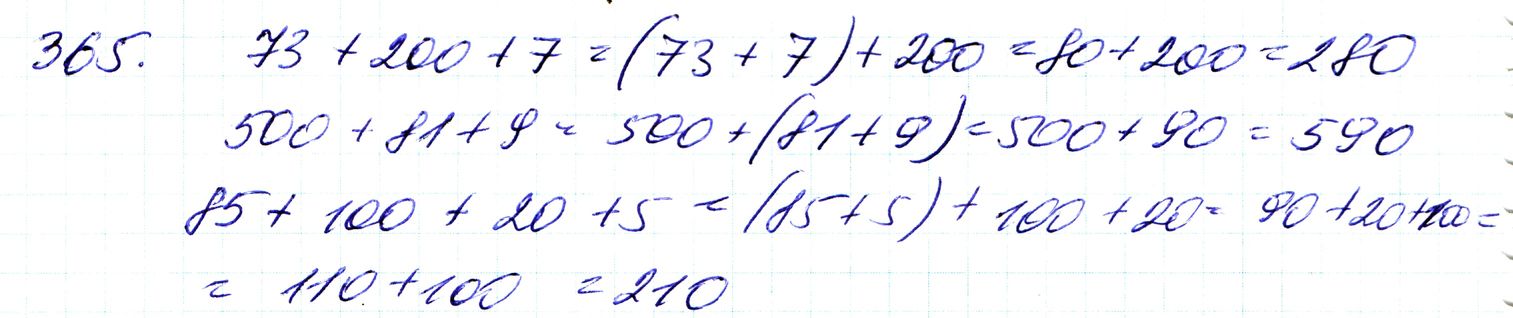 365. 73 + 200 + 7 = (73 + 7) + 200 = 80 + 200 = 280
500 + 81 + 9 = 500 + (81 + 9) = 500 + 90 = 590
85 + 100 + 20 + 5 = (85 + 5) + 100 + 20 = 90 + 20 + 100 =
= 110 + 100 = 210